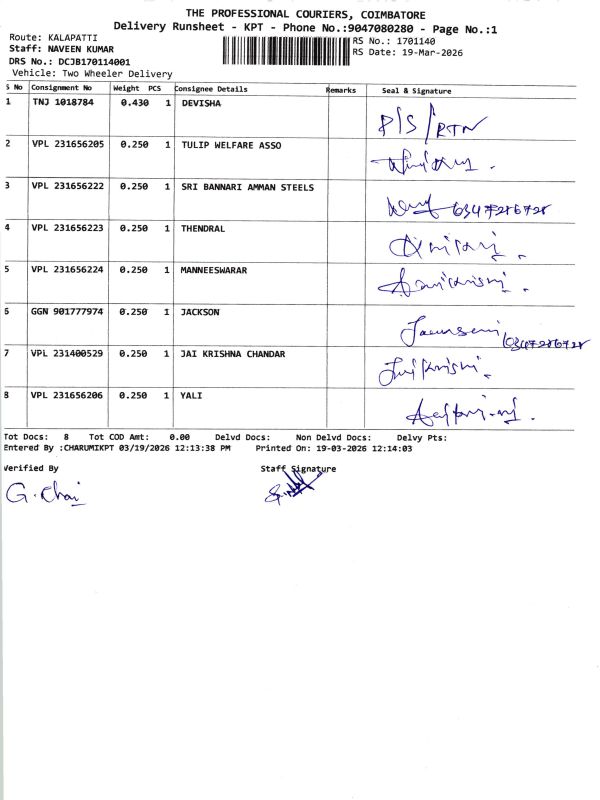 THE PROFESSIONAL COURIERS, COIMBATORE
Delivery Runsheet - KPT - Phone No.:9047080280 - Page No.:1
Route: KALAPATTI
Staff: NAVEEN KUMAR
DRS No.: DCJB170114001
Vehicle: Two Wheeler Delivery
RS No.: 1701140
RS Date: 19-Mar-2026
S No Consignment No Weight PCS Consignee Details Remarks Seal & Signature
1 TNJ 1018784 0.430 1 DEVISHA P/S/RTN
2 VPL 231656205 0.250 1 TULIP WELFARE ASSO
3 VPL 231656222 0.250 1 SRI BANNARI AMMAN STEELS
4 VPL 231656223 0.250 1 THENDRAL
5 VPL 231656224 0.250 1 MANNEESWARAR
6 GGN 901777974 0.250 1 JACKSON
7 VPL 231400529 0.250 1 JAI KRISHNA CHANDAR
8 VPL 231656206 0.250 1 YALI
Tot Docs: 8 Tot COD Amt: 0.00 Delvd Docs: Non Delvd Docs: Delvy Pts:
Entered By :CHARUMIKPT 03/19/2026 12:13:38 PM Printed On: 19-03-2026 12:14:03
Verified By Staff Signature
G. Chai